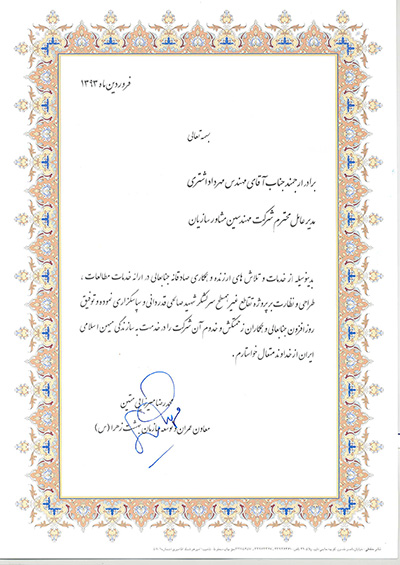 فروردین ماه ۱۳۹۳
بسمه تعالی
برادر ارجمند جناب آقای مهندس مهرداد اشتری
مدیر عامل محترم شرکت مهندسین مشاور سازیان
بدینوسیله از خدمات و تلاش های ارزنده و همکاری صادقانه جنابعالی در ارائه خدمات مطالعات ،
طراحی و نظارت بر پروژه تقاطع غیر همسطح سرلشکر شهید صالحی قدردانی و سپاسگزاری نموده و توفیق
روز افزون جنابعالی و همکاران زحمتکش و خدوم آن شرکت را در خدمت به سازندگی میهن اسلامی
ایران از خداوند متعال خواستارم .
محمدرضا متین
معاون عمران و توسعه سازمان بهشت زهرا (س)